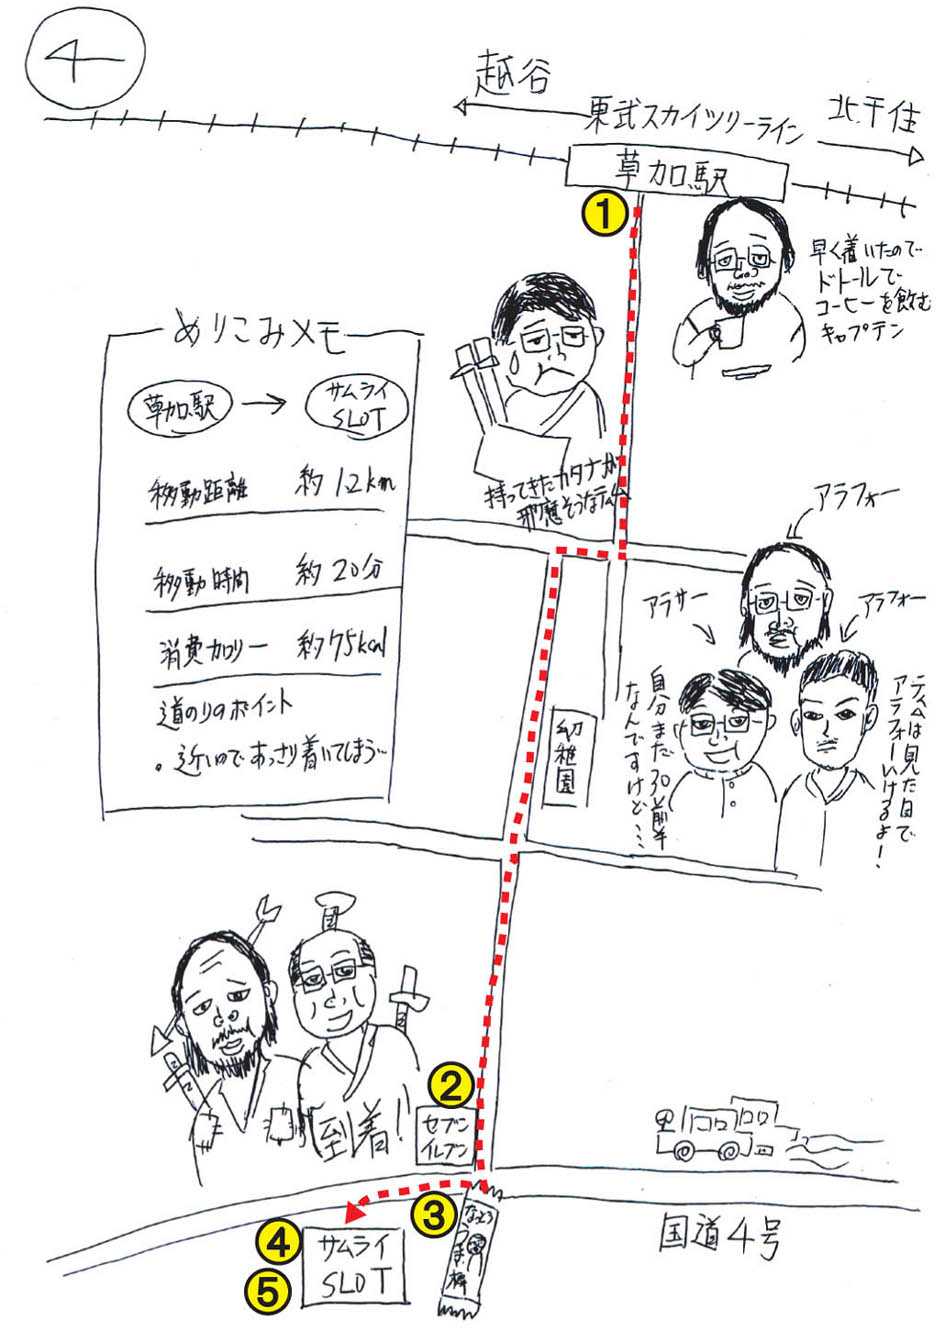 越谷
東武スカイツリーライン
北千住
草加駅
①
早く着いたので
ドトールで
コーヒーを飲む
キャプテン
めりこみメモ
草加駅 → サムライ
SLOT
移動距離 約1.2km
移動時間 約20分
消費カロリー 約75kcal
道のりのポイント
・近いのであっさり着いてしまう…
持ってきたカタナが
邪魔そうなティム
アラフォー
アラサー
アラフォー
自分まだ30前半
なんですけど…
ティムは見た目で
アラフォーいけるよ!
幼稚園
到着!
②
セブン
イレブン
③
なっとう
④
⑤
サムライ
SLOT
国道4号